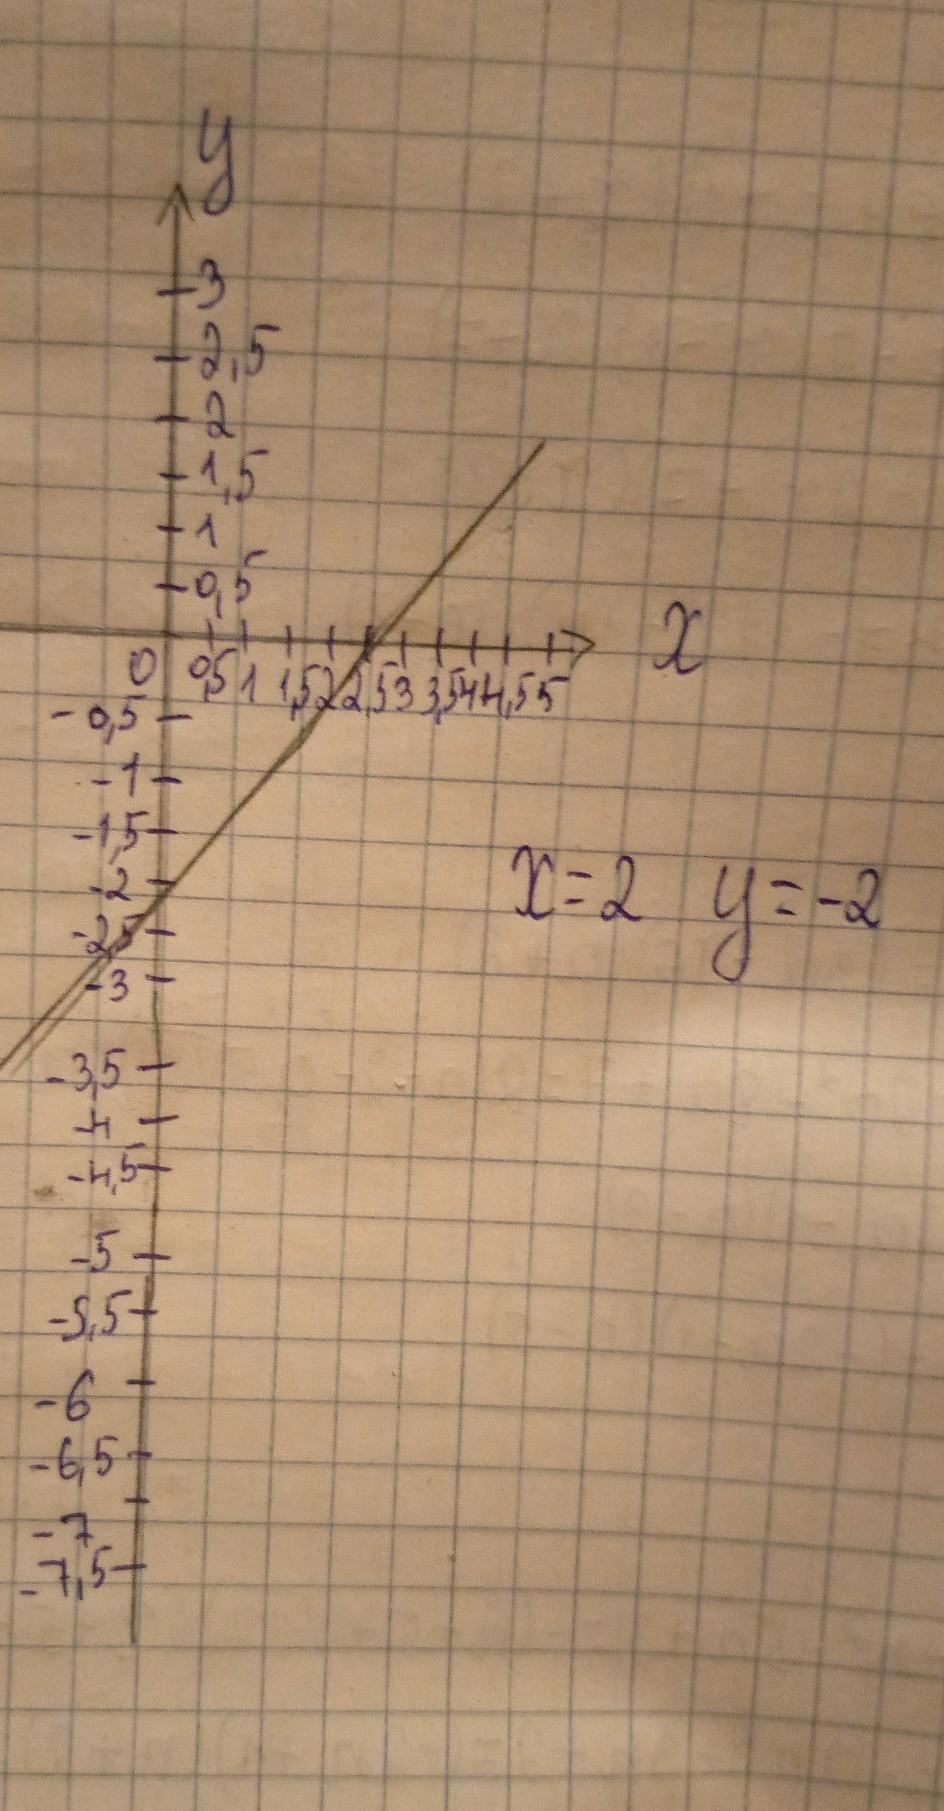 y
3
2,5
2
1,5
1
0,5
x
0 0,5 1 1,5 2 2,5 3 3,5 4 4,5 5
-0,5
-1
-1,5
-2
x=2 y=-2
-2,5
-3
-3,5
-4
-4,5
-5
-5,5
-6
-6,5
-7
-7,5